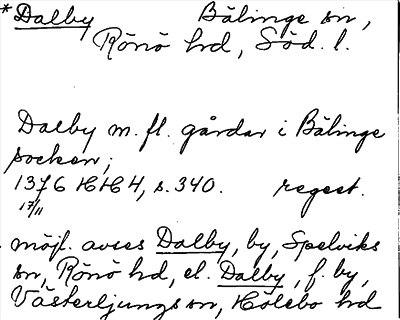 *Dalby Bälinge sn,
Rönö hd, Söd. l.
Dalby m. fl. gårdar i Bälinge
socken;
1376 HH4, s. 340. regest.
17/11
möjl. avses Dalby, by, Spelviks
sn, Rönö hd, el. Dalby, f. by,
Västerljungs sn, Hölebo hd